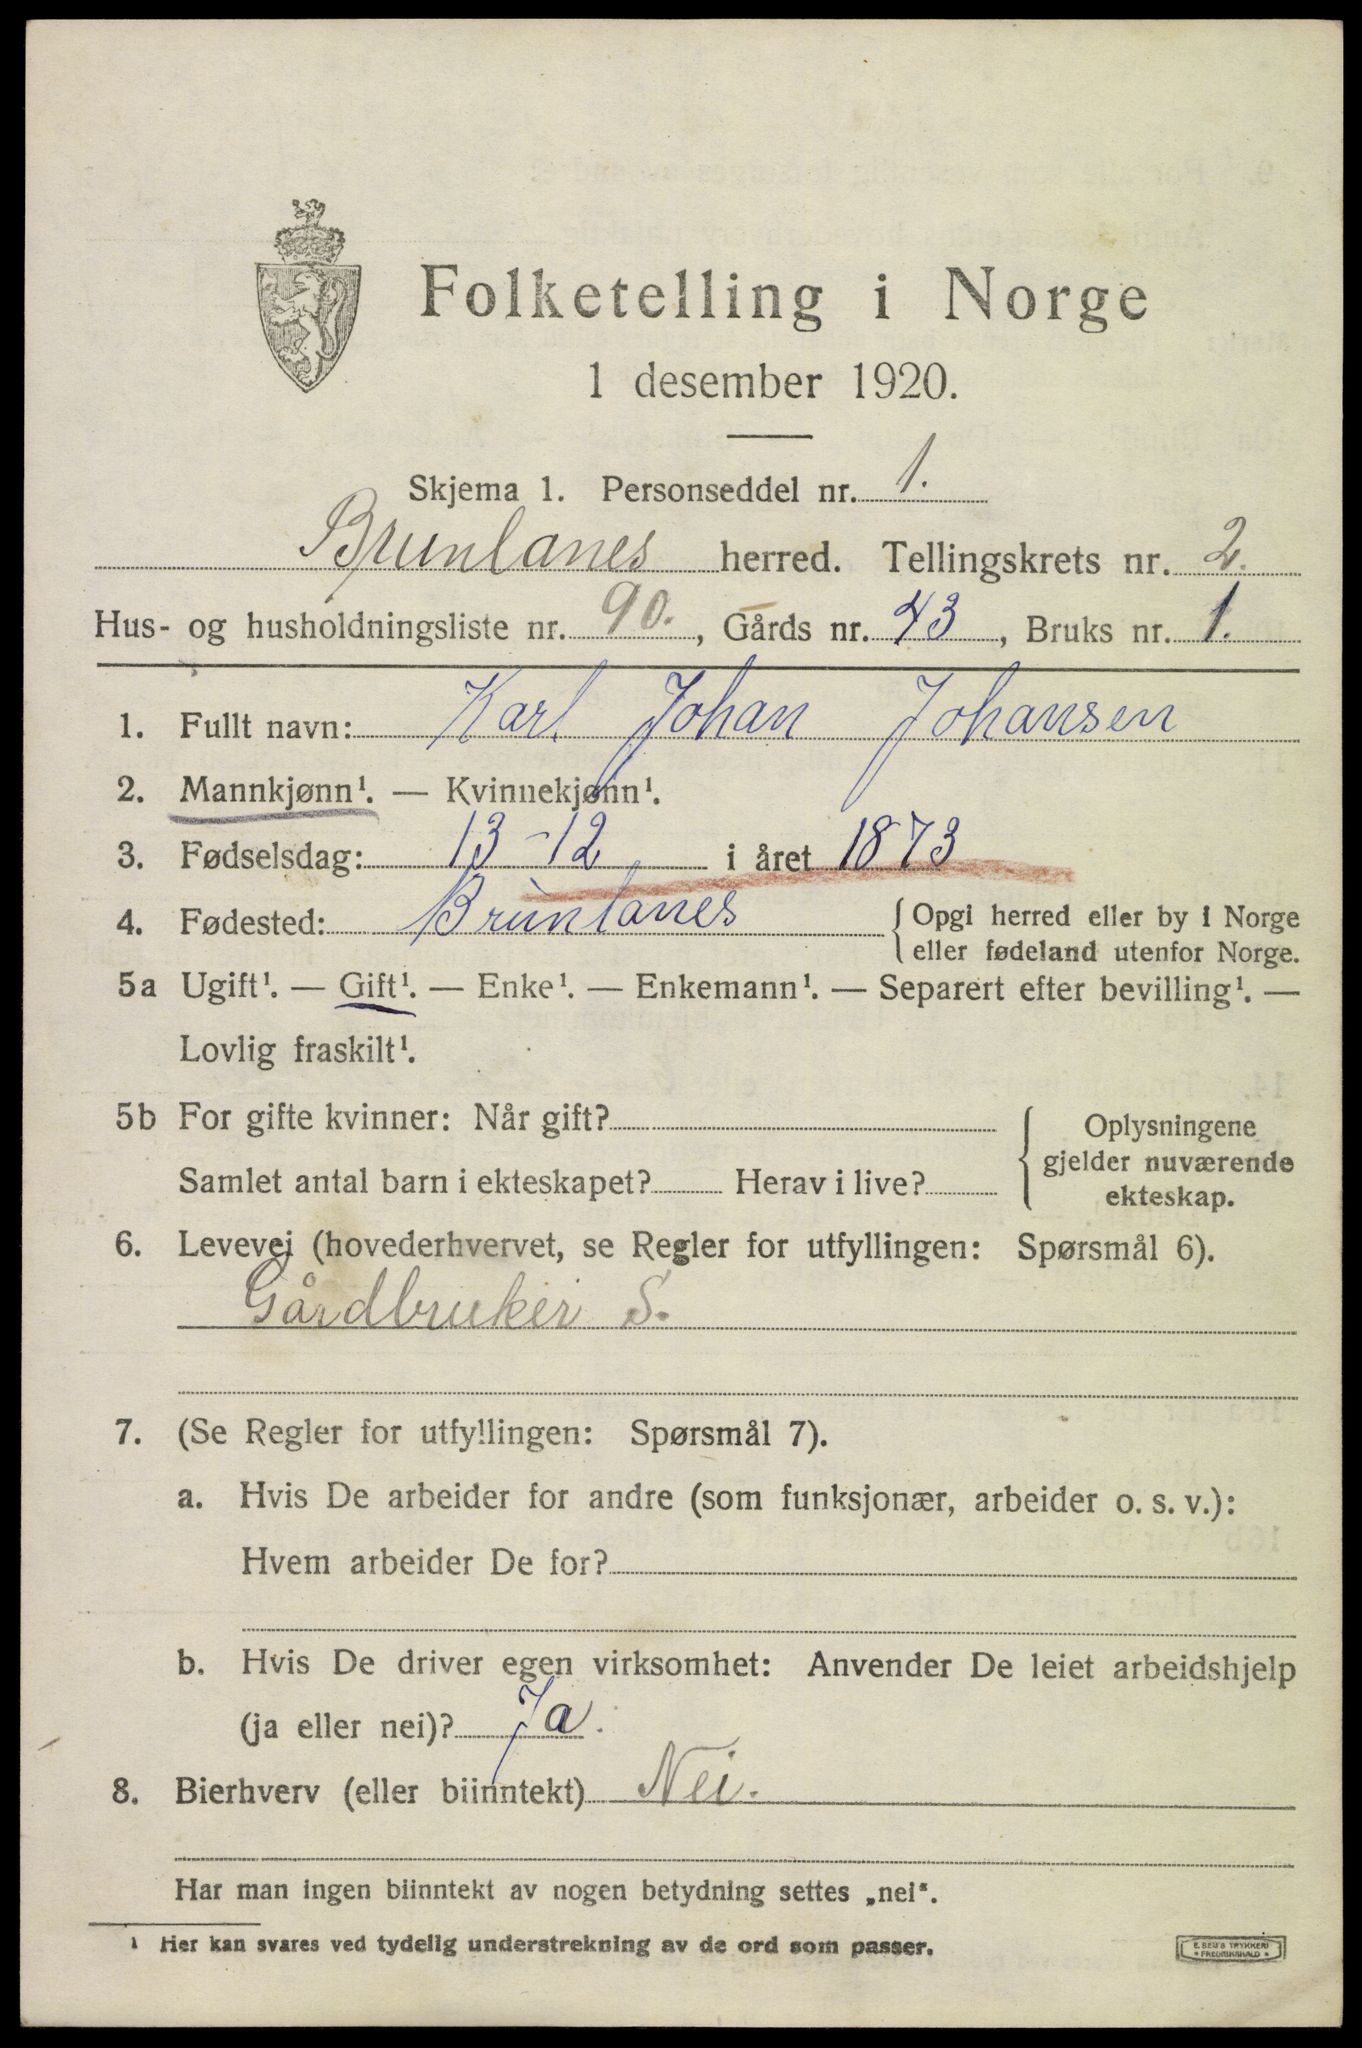 Folketelling i Norge
1 desember 1920.
Skjema 1. Personseddel nr. 1.
Brunlanes herred. Tellingskrets nr. 2.
Hus- og husholdningsliste nr. 90., Gårds nr. 43, Bruks nr. 1.
1. Fullt navn: Karl Johan Johansen
2. Mannkjønn¹. — Kvinnekjønn¹.
3. Fødselsdag: 13-12 i året 1873
4. Fødested: Brunlanes { Opgi herred eller by i Norge
eller fødeland utenfor Norge.
5a Ugift¹. — Gift¹. — Enke¹. — Enkemann¹. — Separert efter bevilling¹. —
Lovlig fraskilt¹.
5b For gifte kvinner: Når gift?
Samlet antal barn i ekteskapet? Herav i live?
Oplysningene
gjelder nuværende
ekteskap.
6. Levevei (hovederhvervet, se Regler for utfyllingen: Spørsmål 6).
Gårdbruker S.
7. (Se Regler for utfyllingen: Spørsmål 7).
a. Hvis De arbeider for andre (som funksjonær, arbeider o. s. v.):
Hvem arbeider De for?
b. Hvis De driver egen virksomhet: Anvender De leiet arbeidshjelp
(ja eller nei)? Ja.
8. Bierhverv (eller biinntekt) Nei.
Har man ingen biinntekt av nogen betydning settes „nei“.
¹ Her kan svares ved tydelig understrekning av de ord som passer.
E. SEM'S TRYKKERI
* FREDRIKSHALD *